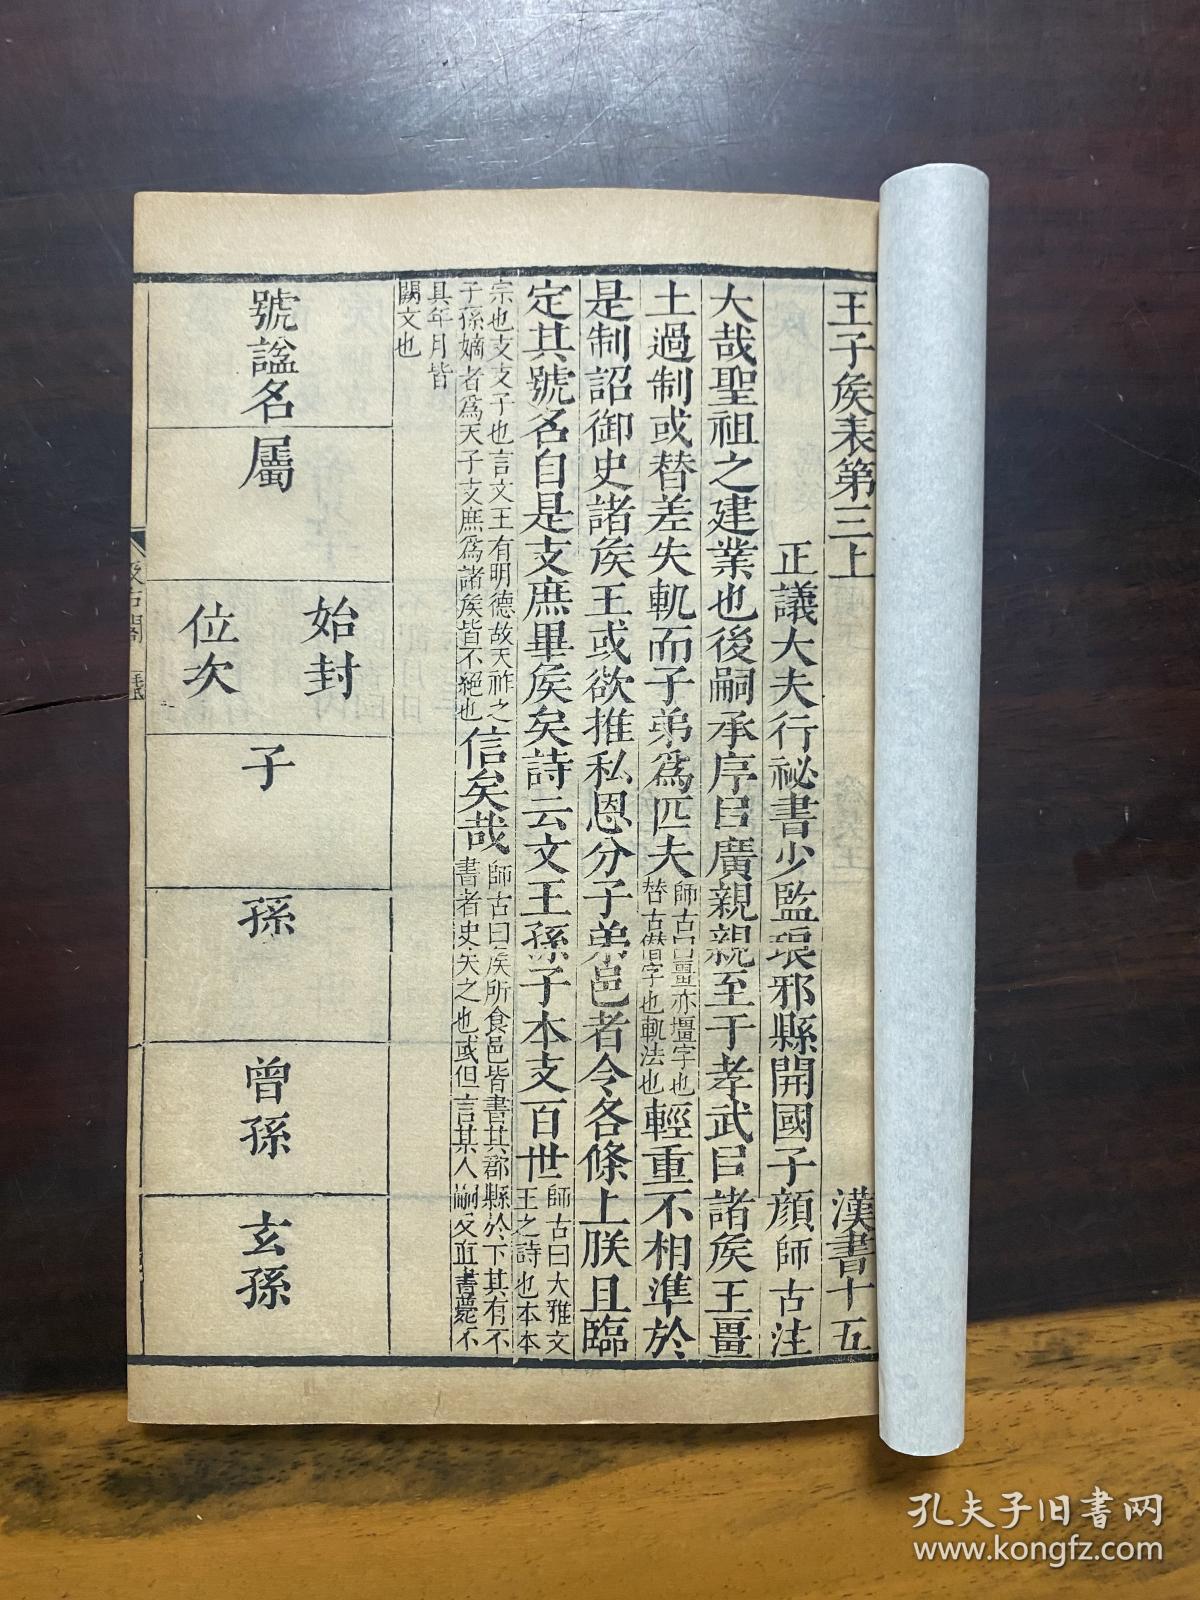 王子矦表第三上　漢書十五
正議大夫行祕書少監琅邪縣開國子顔師古注
大哉聖祖之建業也後嗣承序㠯廣親親至于孝武㠯諸矦王畺
土過制或替差失軌而子弟爲匹夫師古曰畺亦壃字也替古僭字也軌法也輕重不相準於
是制詔御史諸矦王或欲推私恩分子弟邑者令各條上朕且臨
定其號名自是支庶畢矦矣詩云文王孫子本支百世師古曰大雅文王之詩也本本
宗也支支子也言文王有明德故天祚之子孫嫡者爲天子支庶爲諸矦皆不絕也信矣哉師古曰矦所食邑皆書其郡縣於下其有不書者史失之也或但言某人嗣及直書薨不
具年月皆闕文也
號謚名
屬
始封
位次
子
孫
曾孫
玄孫
汲古閣
孔夫子旧书网
www.kongfz.com